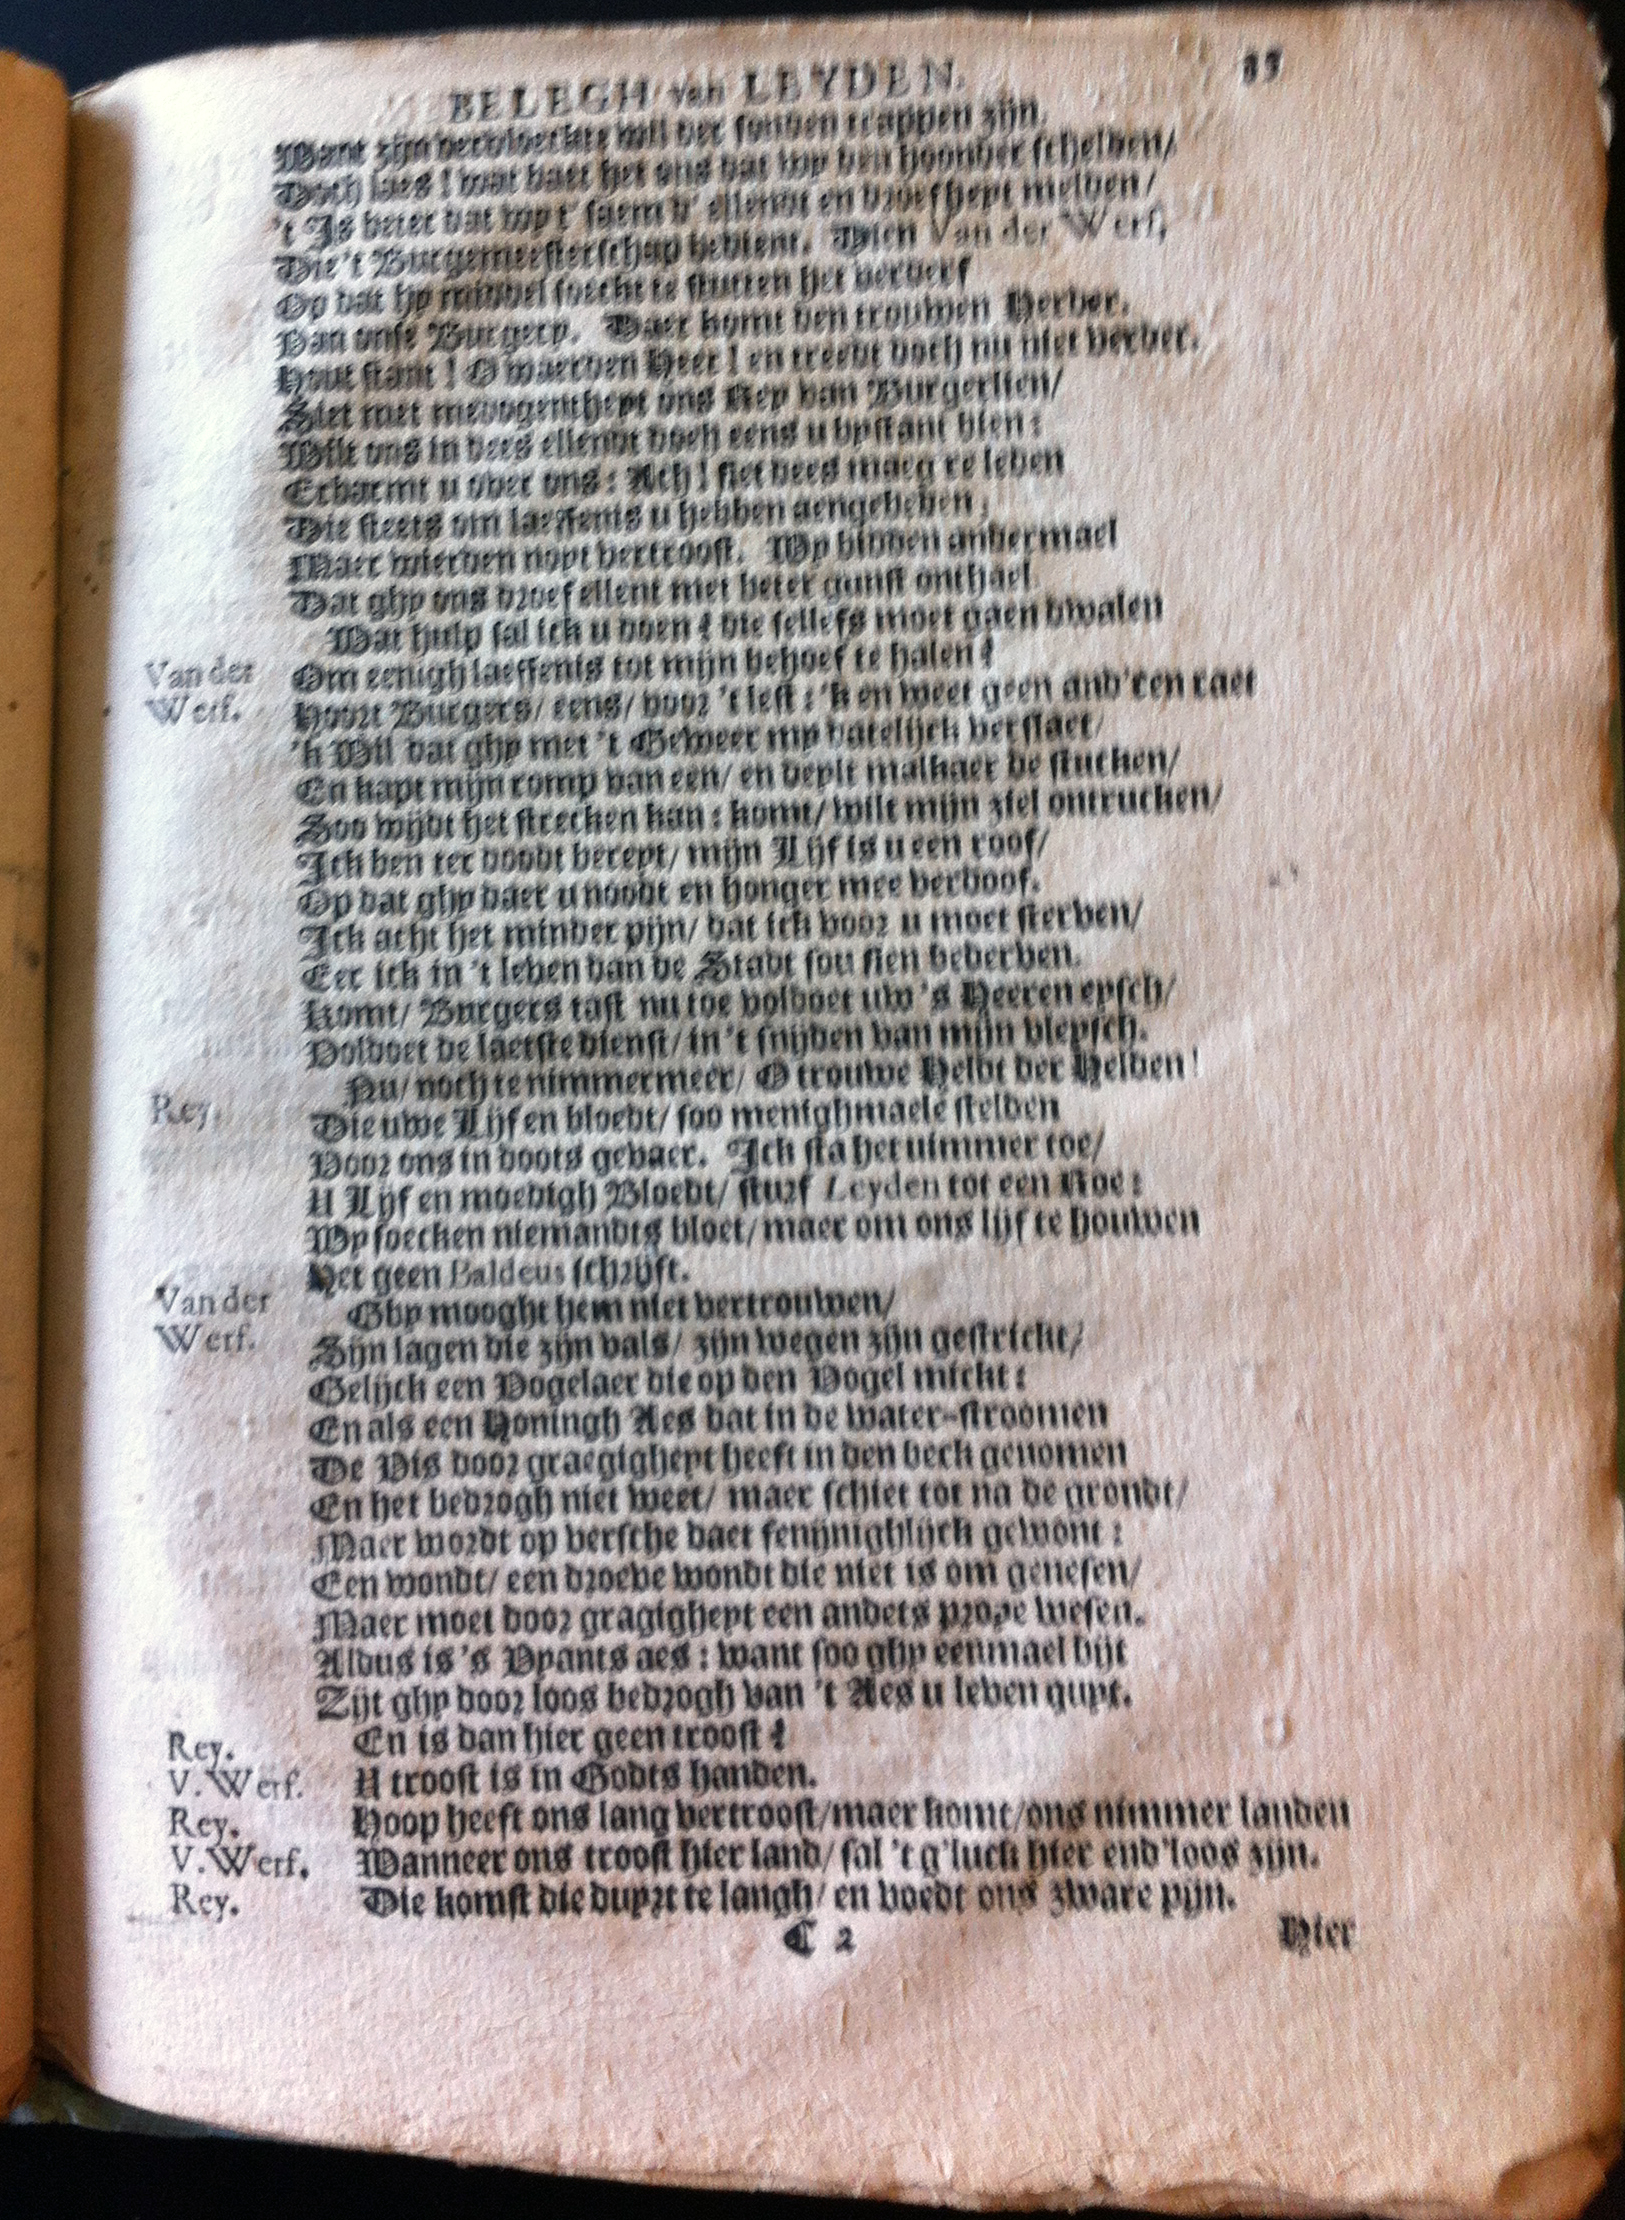 BELEGH van LEYDEN. 35
Want zijn vervloeckte wil der sonden trappen zijn.
Doch laes! wat baet het ons dat wy den hoonder schelden/
't Is beter dat wy t' saem d' ellendt en droefheyt melden/
Die 't Burgemeesterschap bedient. Dien Van der Werf,
Op dat hy middel soeckt te stutten het verderf
Van onse Burgery. Daer komt den trouwen Herder.
Hout stant! O waerden Heer! en treedt doch nu niet verder.
Siet met medogentheyt ons Rey van Burgerlien/
Wilt ons in dees ellendt doch eens u bystant bien:
Erbarmt u over ons: Ach! siet dees maeg're leden
Die steets om laeffenis u hebben aengebeden,
Maer wierden noyt vertroost. Wy bidden andermael
Dat ghy ons droef ellent met beter gunst onthael.
Van der Werf. Wat hulp sal ick u doen? die sellefs moet gaen dwalen
Om eenigh laeffenis tot mijn behoef te halen?
Hoort Burgers/ eens/ voor 't lest: 'k en weet geen and'ren raet
'k Wil dat ghy met 't Geweer my datelijck verslaet/
En kapt mijn romp van een/ en deylt malkaer de stucken/
Soo wijdt het strecken kan: komt/ wilt mijn ziel ontrucken/
Ick ben ter doodt bereyt/ mijn Lijf is u een roof/
Op dat ghy daer u noodt en honger mee verdoof.
Ick acht het minder pijn/ dat ick voor u moet sterven/
Eer ick in 't leven van de Stadt sou sien bederven.
Komt/ Burgers tast nu toe voldoet uw 's Heeren eysch/
Voldoet de laetste dienst/ in 't snijden van mijn vleysch.
Rey. Nu/ noch te nimmermeer/ O trouwe Heldt der Helden!
Die uwe Lijf en bloedt/ soo menighmaele stelden
Voor ons in doots gevaer. Ick sta het nimmer toe/
U Lijf en moedigh Bloedt/ sturf Leyden tot een Roe:
Wy soecken niemandts bloet/ maer om ons lijf te houwen
Het geen Baldeus schrijft.
Van der Werf. Ghy mooght hem niet vertrouwen/
Sijn lagen die zijn vals/ zijn wegen zijn gestrickt/
Gelijck een Vogelaer die op den Vogel mickt:
En als een Honingh Aes dat in de water-stroomen
De Vis door graegigheyt heeft in den beck genomen
En het bedrogh niet weet/ maer schiet tot na de grondt/
Maer wordt op versche daet fenijnighlijck gewont:
Een wondt/ een droeve wondt die niet is om genesen/
Maer moet door gragigheyt een anders prooye wesen.
Aldus is 's Vyants aes: want soo ghy eenmael bijt
Zijt ghy door loos bedrogh van 't Aes u leven quyt.
Rey. En is dan hier geen troost?
V. Werf. U troost is in Godts handen.
Rey. Hoop heeft ons lang vertroost/maer komt/ons nimmer landen
V. Werf. Wanneer ons troost hier land/ sal 't g'luck hier end'loos zijn.
Rey. Die komst die duyrt te langh/ en voedt ons zware pijn.
C 2 Hier